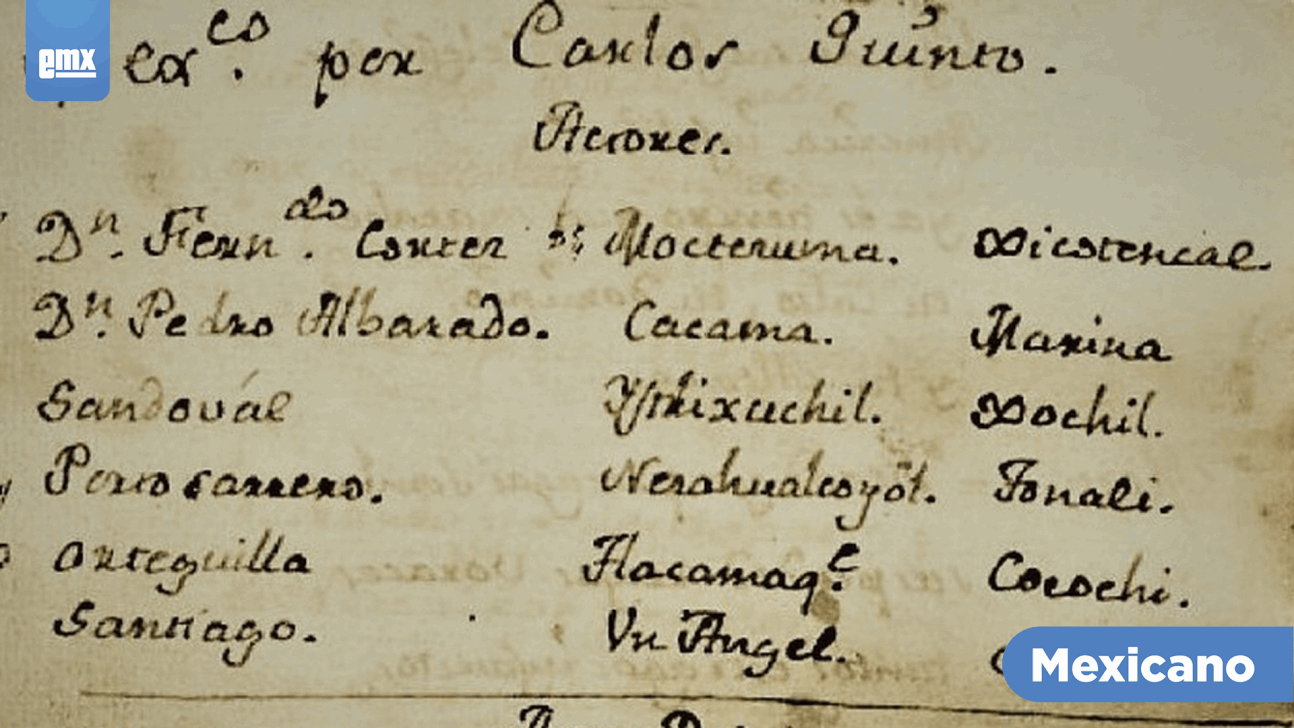 emx
ex.co por Carlos Quinto.
Actores.
Dn. Fern.do Cortez Mocteruma. Xicotencal.
Dn. Pedro Albarado. Cacama. Marina
Sandovál Xochil.
Porto carrero. Nezahualcoyōt. Tonali.
Orteguilla Tlacamaq.e Cocochi.
Santiago. Vn Angel.
Mexicano